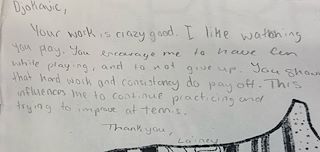 Djokavic,
Your work is crazy good. I like watching
you pay. You encourage me to have fun
while playing, and to not give up. You show
that hard work and consistency do pay off. This
influences me to continue practicing and
trying to improve at tennis.
Thank you,
Lainey